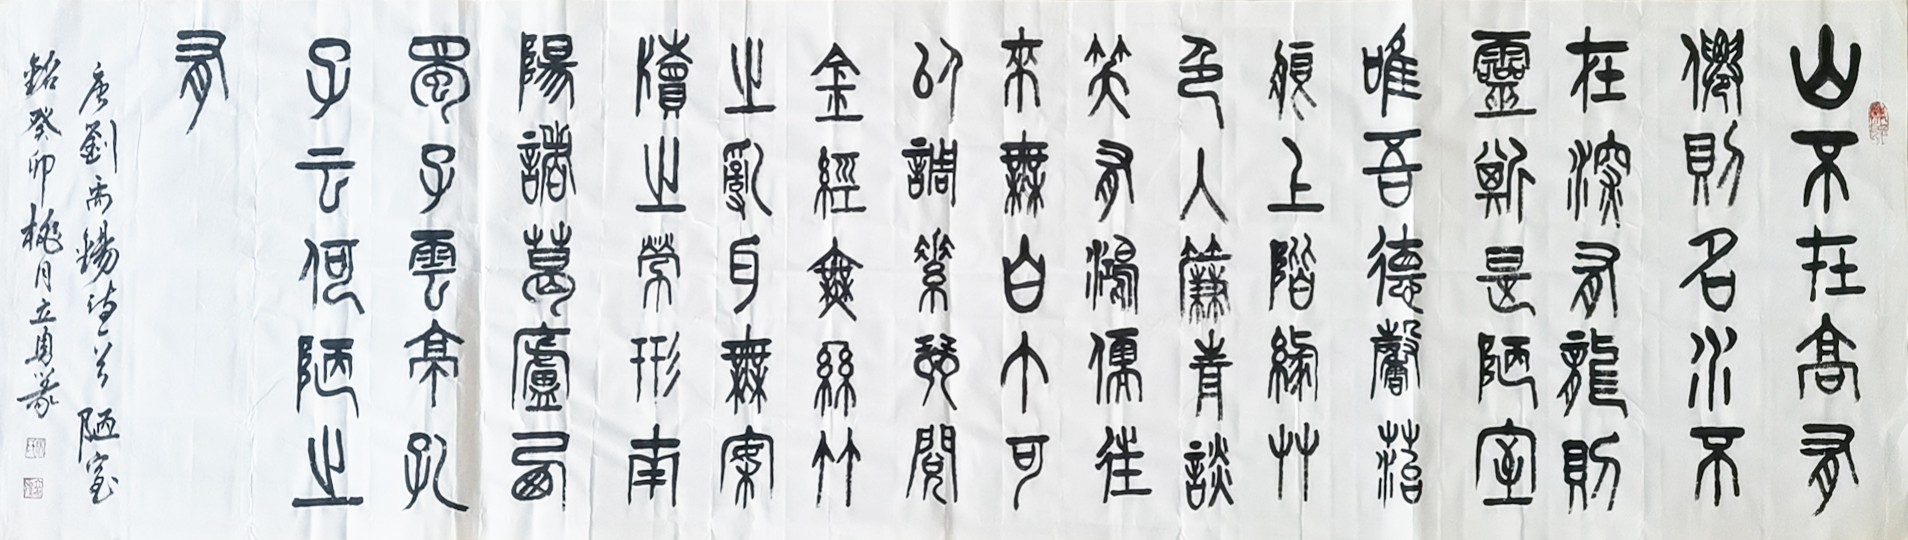 山不在高有
僊則名水不
在深有龍則
靈斯是陋室
唯吾德馨苔
痕上階緣艸
色入簾青談
笑有鴻儒往
來無白丁可
以調素琴閱
金經無絲竹
之亂耳無案
牘之勞形南
陽諸葛廬西
蜀子雲亭孔
子云何陋之
有
唐劉禹錫詩一首陋室
銘癸卯桃月立勇篆